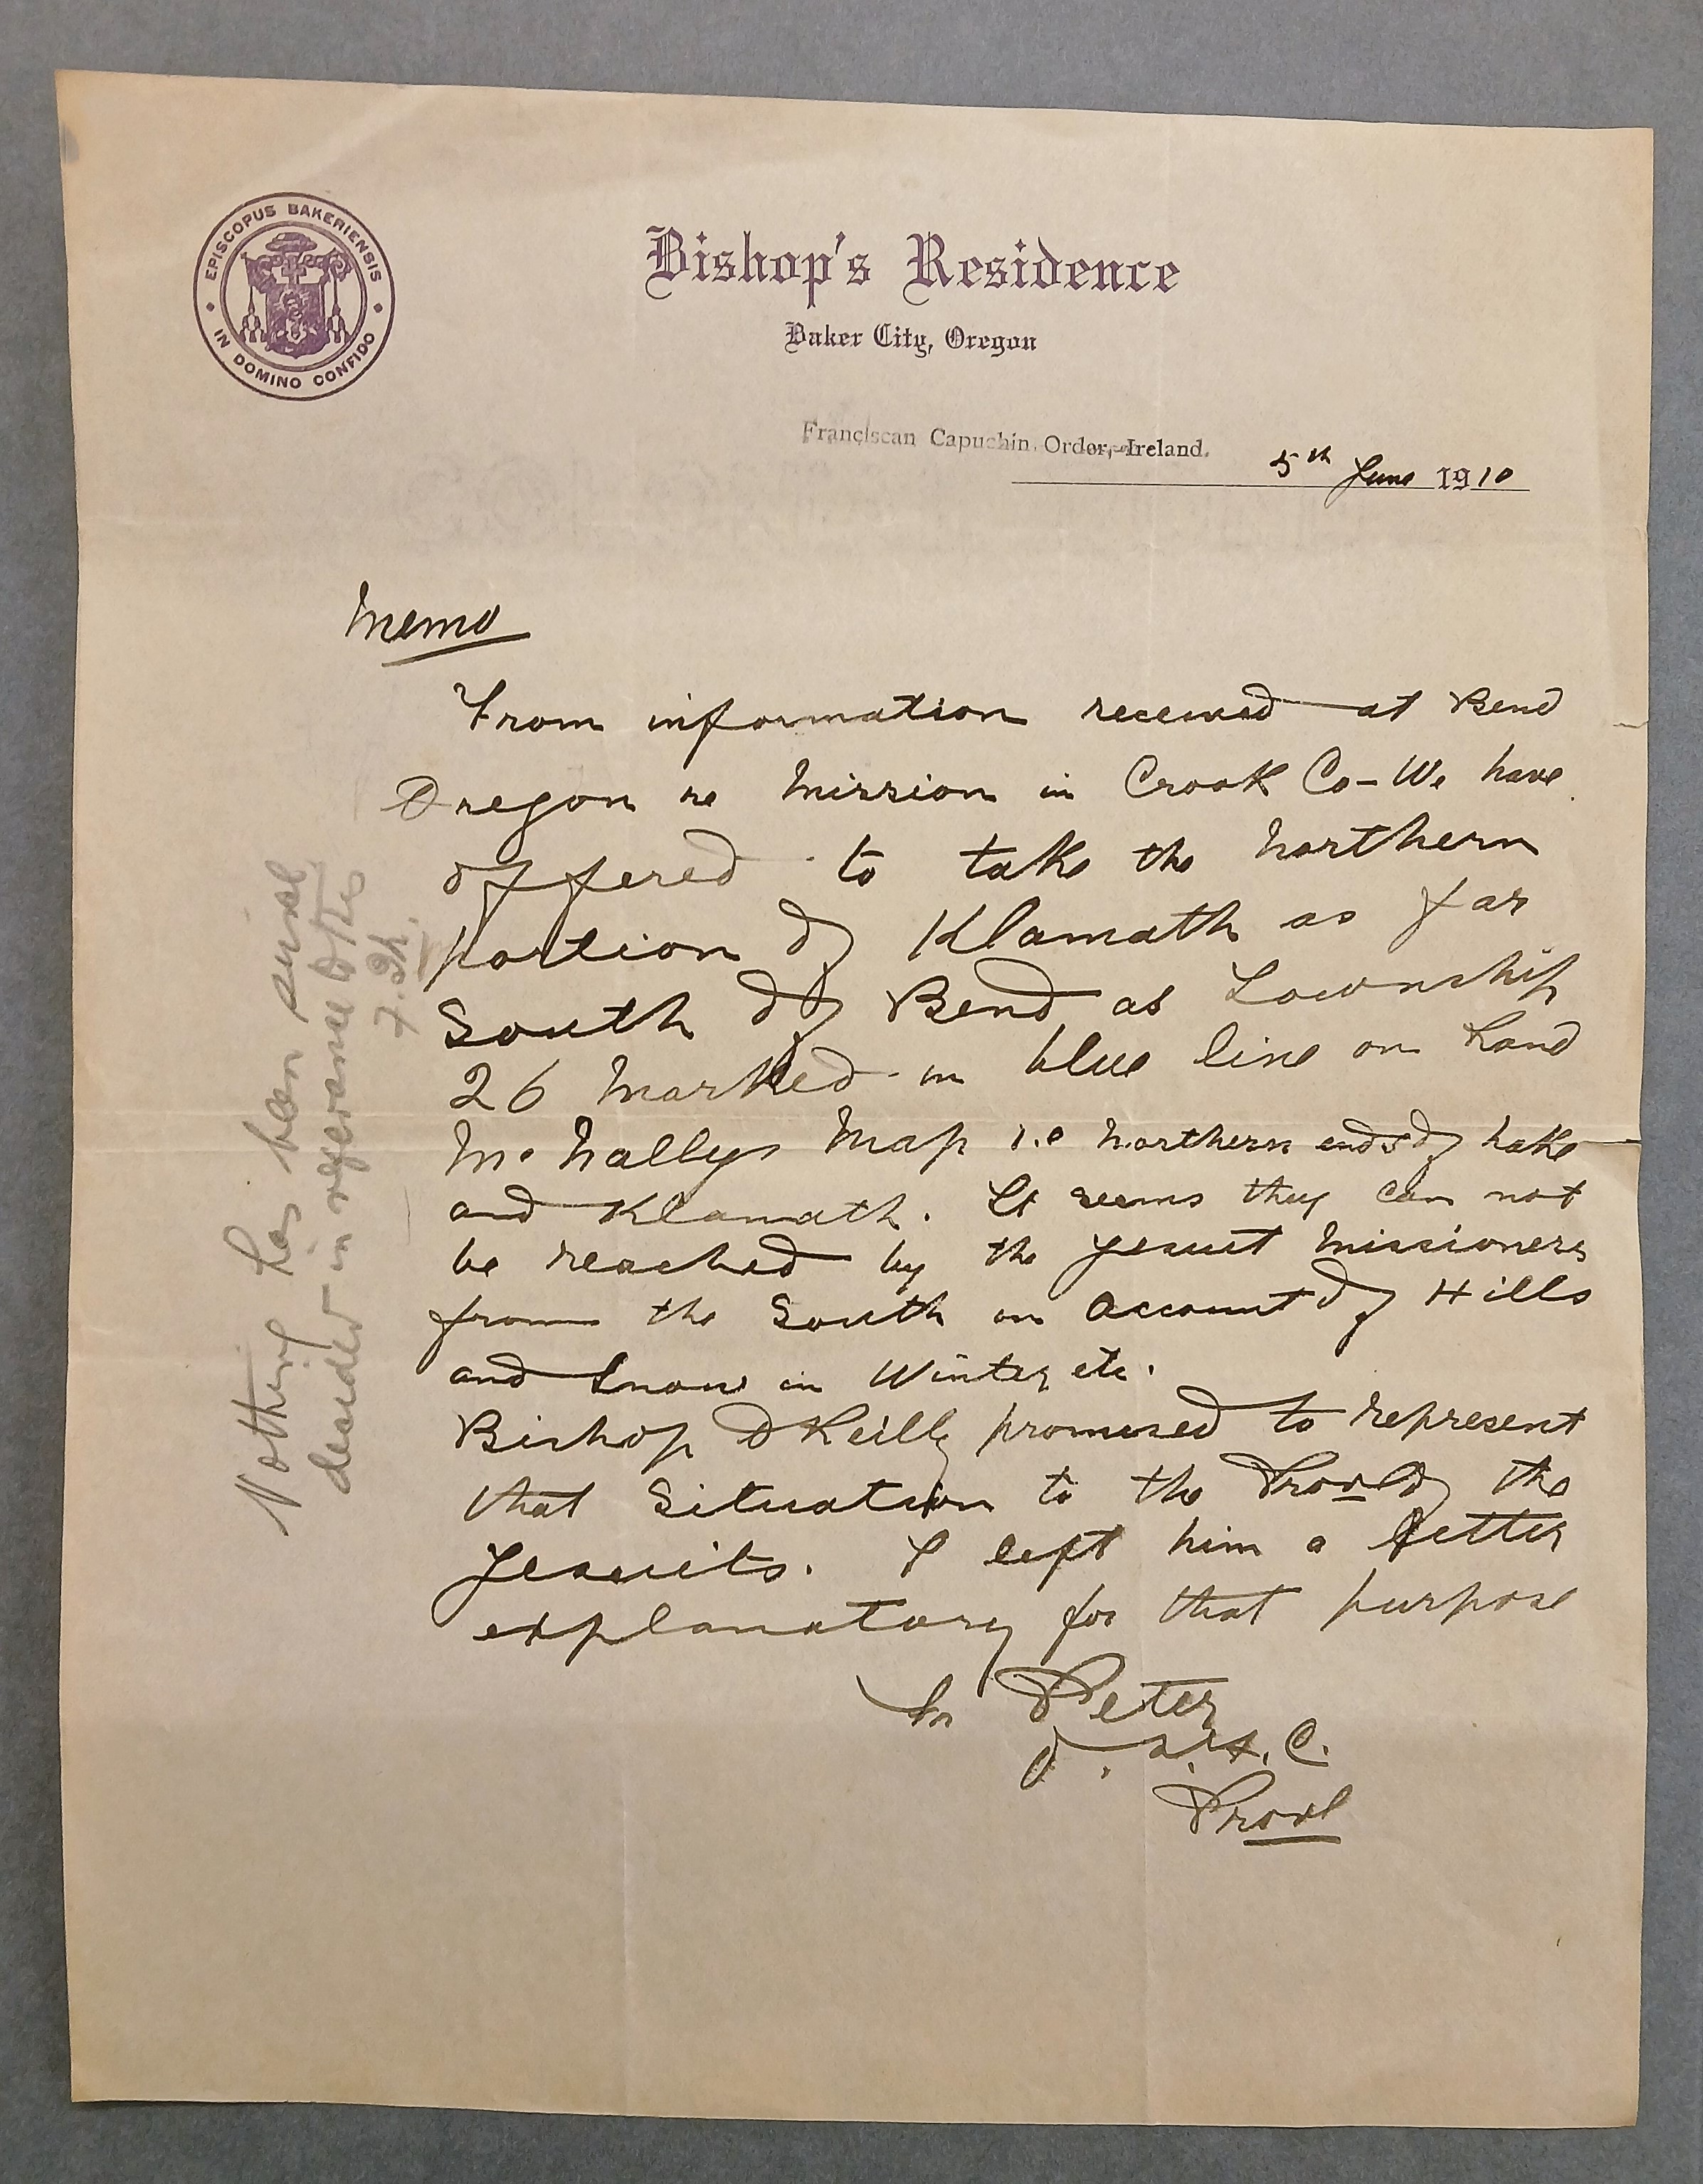 EPISCOPUS BAKERIENSIS
IN DOMINO CONFIDO
Bishop's Residence
Baker City, Oregon
Franciscan Capuchin Order,-Ireland.
5th June 1910
Memo
From information received at Bend
Oregon re Mission in Crook Co - We have
offered to take the Northern
portion of Klamath as far
South of Bend as Township
26 Marked in blue line on Rand
McNallys Map i.e Northern ends of Lake
and Klamath. It seems they can not
be reached by the Jesuit Missioners
from the South on account of Hills
and Snow in Winter etc.
Bishop O'Reilly promised to represent
that Situation to the Provl of the
Jesuits. I left him a letter
explanatory for that purpose
Fr Peter
O.S.F.C.
Provl
Nothing has been
decided in reference to this